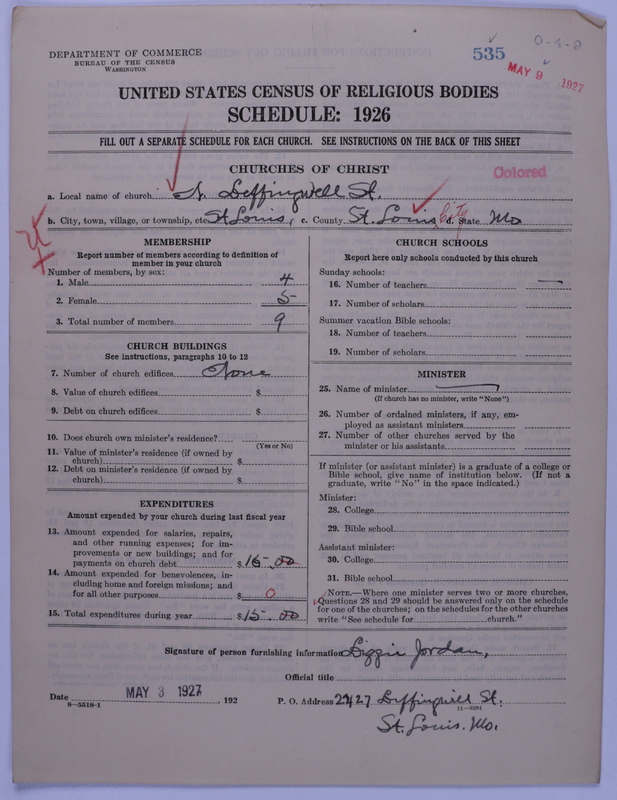 DEPARTMENT OF COMMERCE
BUREAU OF THE CENSUS
WASHINGTON
535
MAY 9 1927
O-4-8
UNITED STATES CENSUS OF RELIGIOUS BODIES
SCHEDULE: 1926
FILL OUT A SEPARATE SCHEDULE FOR EACH CHURCH. SEE INSTRUCTIONS ON THE BACK OF THIS SHEET
CHURCHES OF CHRIST
Colored
a. Local name of church N. Leffingwell St.
b. City, town, village, or township, etc. St Louis, c. County St. Louis City d. State Mo
MEMBERSHIP
Report number of members according to definition of
member in your church
Number of members, by sex:
1. Male 4
2. Female 5
3. Total number of members 9
CHURCH BUILDINGS
See instructions, paragraphs 10 to 12
7. Number of church edifices None
8. Value of church edifices $
9. Debt on church edifices $
10. Does church own minister's residence?
(Yes or No)
11. Value of minister's residence (if owned by
church) $
12. Debt on minister's residence (if owned by
church) $
EXPENDITURES
Amount expended by your church during last fiscal year
13. Amount expended for salaries, repairs,
and other running expenses; for im-
provements or new buildings; and for
payments on church debt $ 15.00
14. Amount expended for benevolences, in-
cluding home and foreign missions; and
for all other purposes $ 0
15. Total expenditures during year $ 15.00
CHURCH SCHOOLS
Report here only schools conducted by this church
Sunday schools:
16. Number of teachers —
17. Number of scholars
Summer vacation Bible schools:
18. Number of teachers
19. Number of scholars
MINISTER
25. Name of minister
(If church has no minister, write "None")
26. Number of ordained ministers, if any, em-
ployed as assistant ministers
27. Number of other churches served by the
minister or his assistants
If minister (or assistant minister) is a graduate of a college or
Bible school, give name of institution below. (If not a
graduate, write "No" in the space indicated.)
Minister:
28. College
29. Bible school
Assistant minister:
30. College
31. Bible school
NOTE.—Where one minister serves two or more churches,
Questions 28 and 29 should be answered only on the schedule
for one of the churches; on the schedules for the other churches
write "See schedule for church."
Signature of person furnishing information Lizzie Jordan,
Official title
Date MAY 3 1927, 192
P. O. Address 2427 Leffingwell St.
8—5518-1
11—9091
St. Louis. Mo.